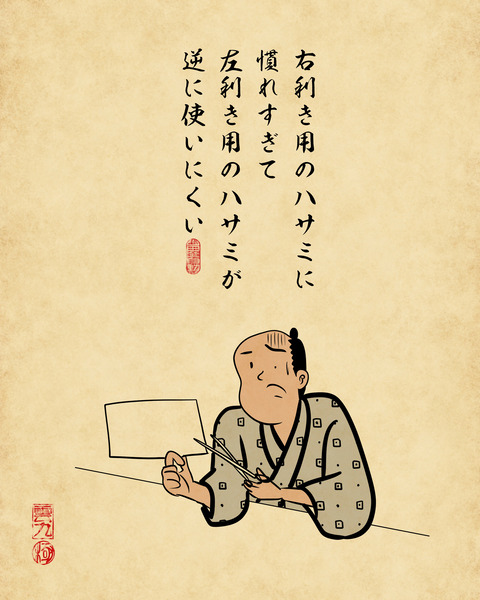 右利き用のハサミに
慣れすぎて
左利き用のハサミが
逆に使いにくい